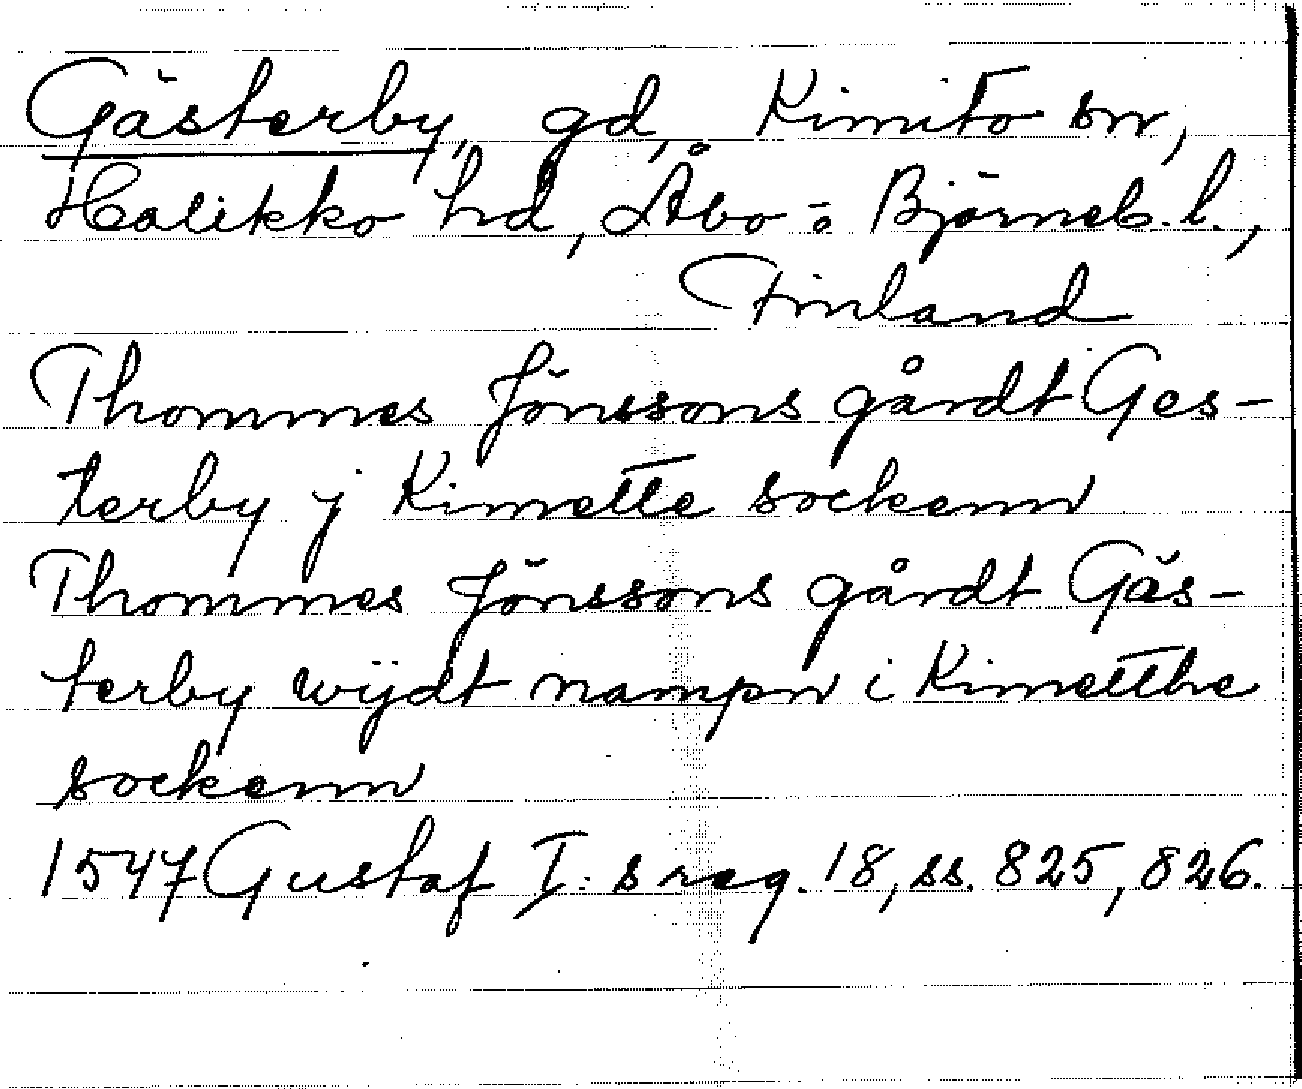 Gästerby, gd, Kimito sn,
Halikko hd, Åbo- o Björneb. l.,
Finland
Thommes Jönssons gårdt Ges-
terby j Kimette sockenn
Thommes Jönssons gårdt Gäs-
terby wÿdt nampn i Kimetthe
sockenn
1547 Gustaf I:s reg. 18, ss. 825, 826.